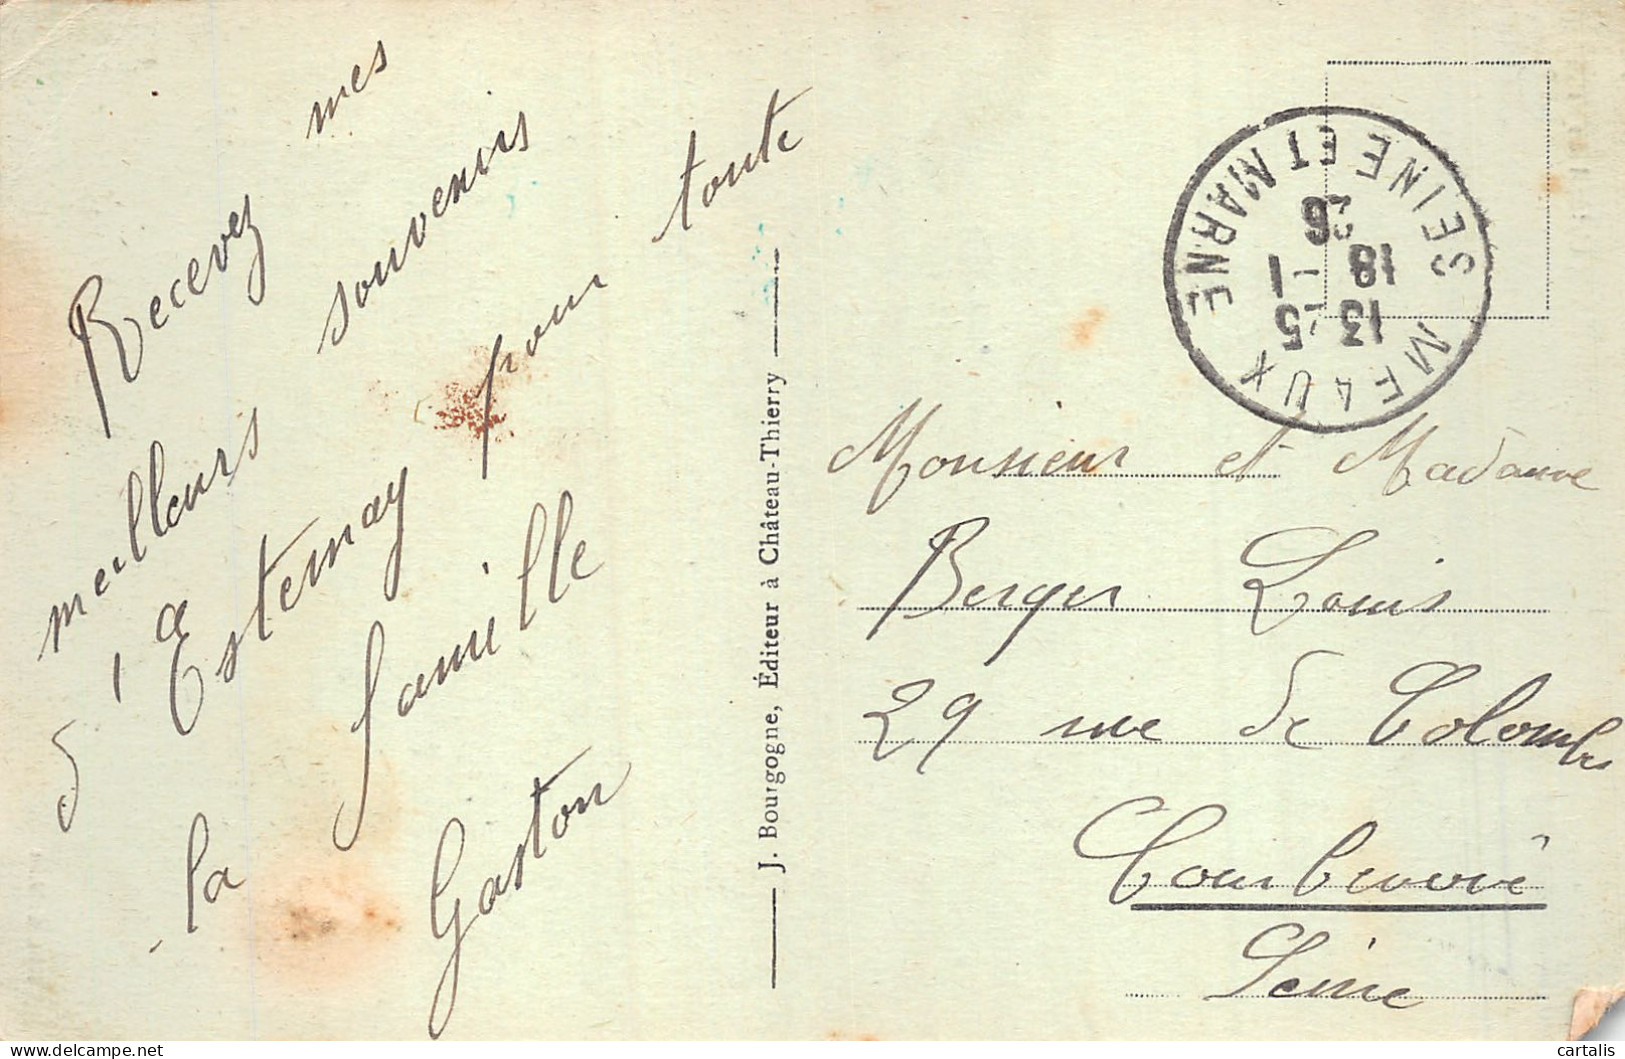 Recevez mes
meilleurs souvenirs
d'a Esternay pour toute
la famille
Gaston
J. Bourgogne, Éditeur à Château-Thierry
MEAUX
SEINE ET MARNE
13 25
18 - 1
26
Monsieur et Madame
Berger Louis
29 rue de Colombes
Courbevoie
Seine
cartalis